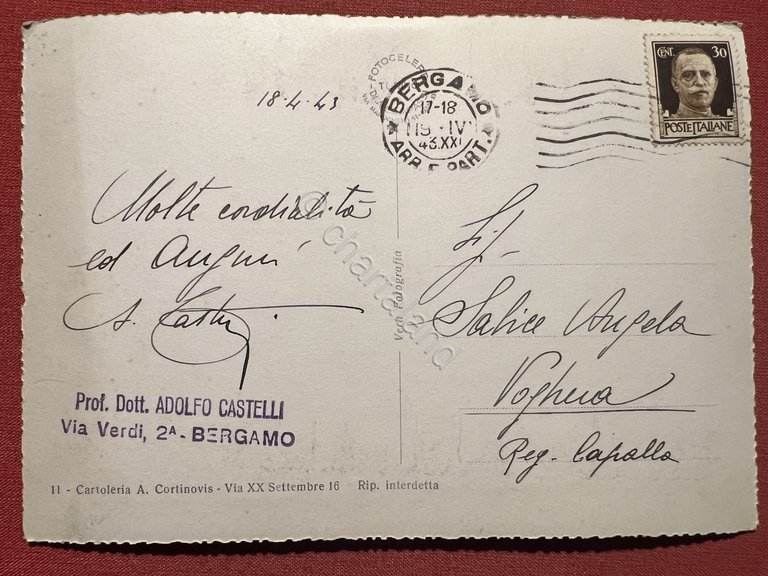 18.4.43
FOTOCELER
BERGAMO
17-18
19 · IV
43.XXI
ARR. E PART.
CENT. 30
POSTE ITALIANE
Molte cordialità
ed Auguri
A. Castelli
Prof. Dott. ADOLFO CASTELLI
Via Verdi, 2A - BERGAMO
11 - Cartoleria A. Cortinovis - Via XX Settembre 16 Rip. interdetta
Vera Fotografia
© chartaland
Sig.
Salice Angela
Voghera
Reg. Capalla